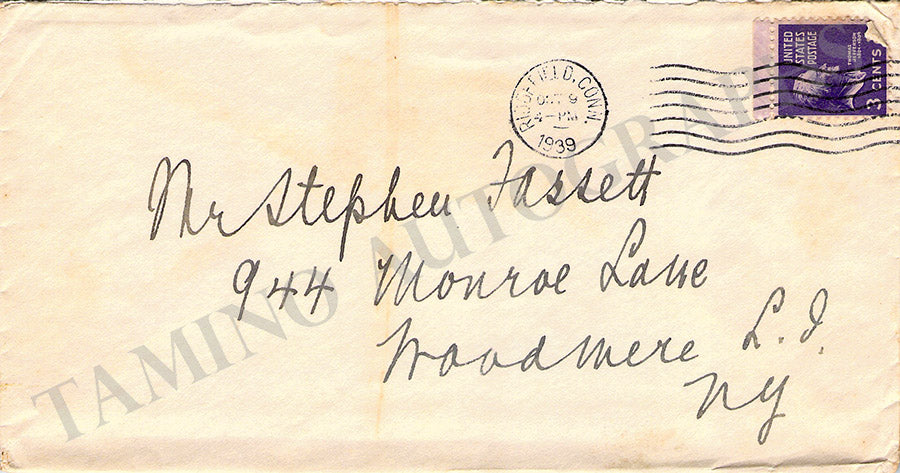 RIDGEFIELD, CONN.
OCT 9
4-PM
1939
UNITED
STATES
POSTAGE
THOMAS
JEFFERSON
3 CENTS
Mr Stephen Fassett
944 Monroe Lane
Woodmere L.I.
NY
TAMINO AUTOGRAPHS